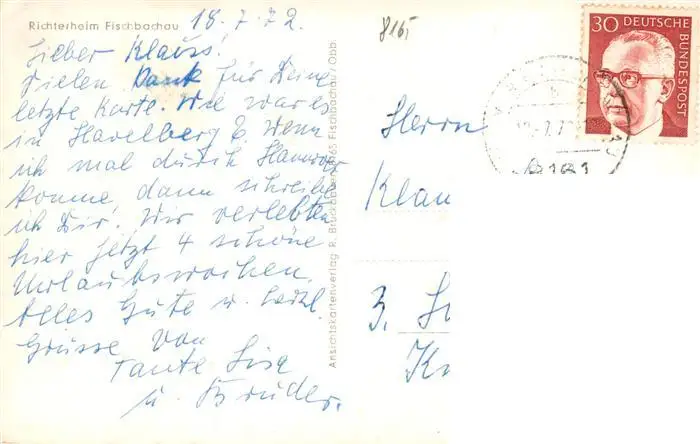 Richterheim Fischbachau
18.7.72.
Lieber Klaus!
Vielen Dank für Deine
letzte Karte. Wie war es
in Havelberg? Wenn
ich mal durch Hannover
komme, dann schreibe
ich Dir. Wir verlebten
hier jetzt 4 schöne
Urlaubswochen.
Alles Gute u. herzl.
Grüsse von
Tante Lisa
u. Bruder.
Ansichtskartenverlag R. Brückbauer 8165 Fischbachau/Obb.
8165
30 DEUTSCHE
BUNDESPOST
8161
Herrn
Klau
3.